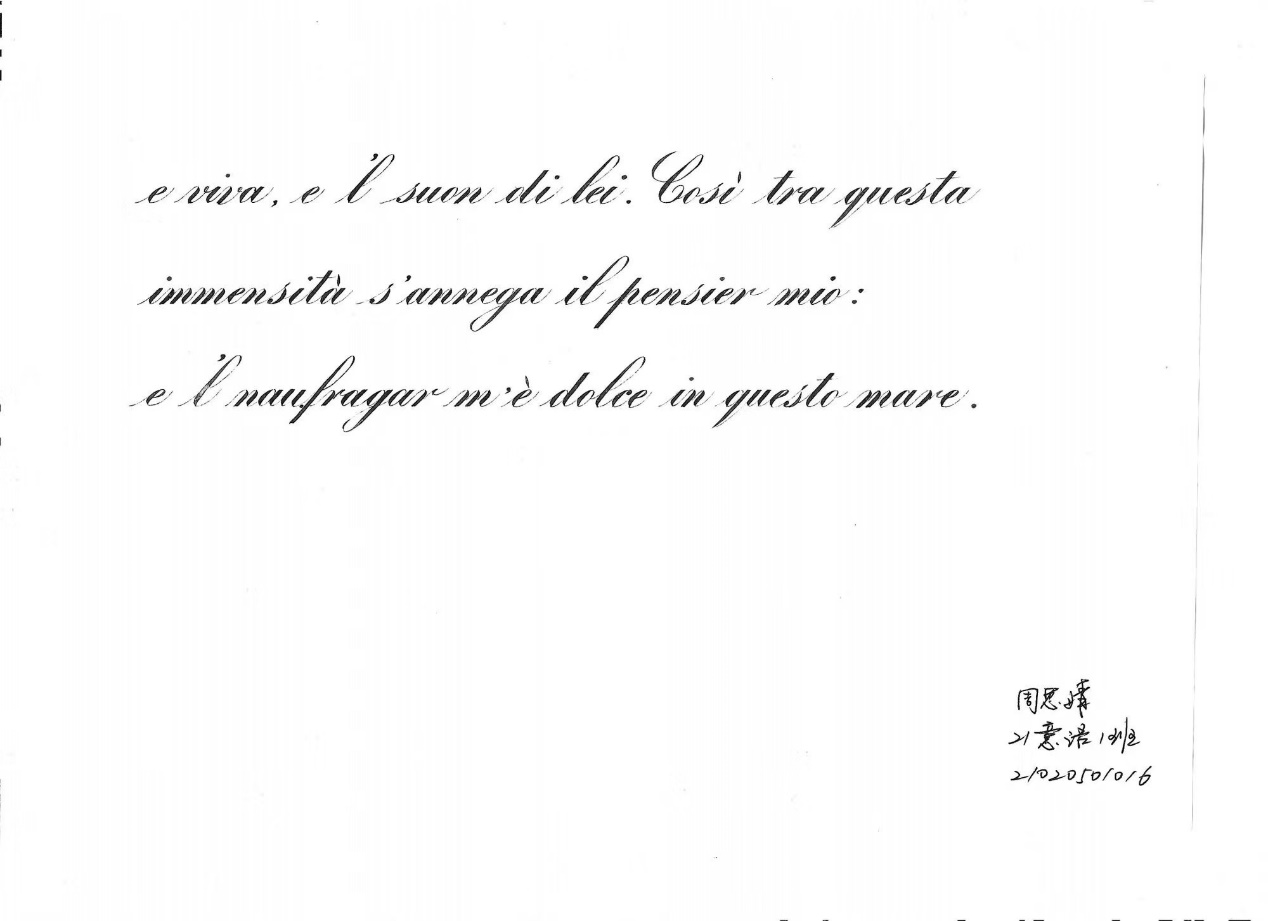 e viva, e 'l suon di lei. Così tra questa
immensità s'annega il pensier mio:
e 'l naufragar m'è dolce in questo mare.
周思婧
21意语1班
21020501016